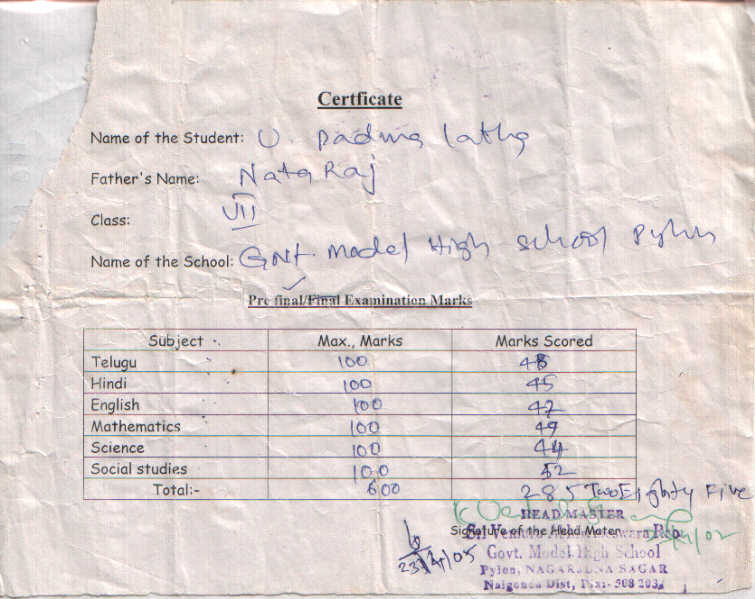 Certficate
Name of the Student: U. Padma latha
Father's Name: Nata Raj
Class: VII
Name of the School: Govt. Model High School Pylon
Pre final/Final Examination Marks
Subject Max., Marks Marks Scored
Telugu 100 48
Hindi 100 45
English 100 47
Mathematics 100 49
Science 100 44
Social studies 100 52
Total:- 600 285 Two Eighty Five
HEAD MASTER
Signature of the Head Mater
Govt. Model High School
Pylon, NAGARJUNA SAGAR
Nalgonda Dist,